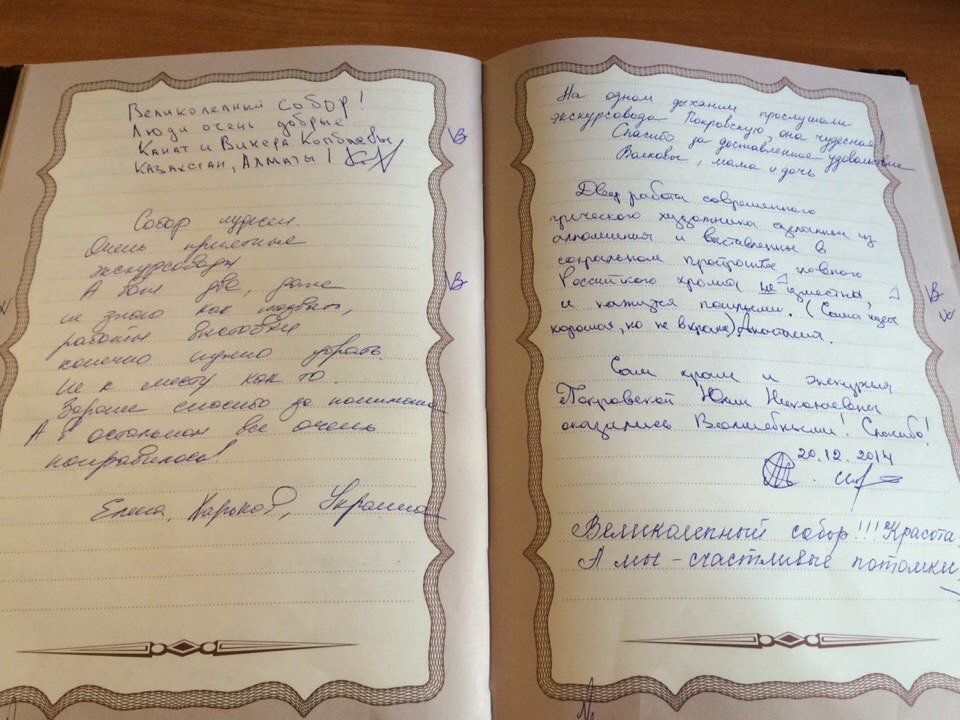 Великолепный собор!
Люди очень добрые!
Канат и Викера
Казахстан, Алматы!
Собор чудесен.
Очень приятные
экскурсоводы
А вот две, даже
не знаю как назвать,
работы
конечно нужно убрать
Не к месту как то.
Зараше спасибо за понимание
А в остальном все очень
понравилось!
Елена, Харьков, Украина
На одном дыхании прослушали
экскурсовода Покровскую, она чудесная!
Спасибо за доставленное удовольствие
Волковы, мама и дочь
Две работы современного
греческого художника сделанные из
алюминия и выставленны в
сакральном простр-ве
Российского храма не уместны,
и кажутся пошлыми. (Сама идея
хорошая, но не в храме) Анастасия.
Сам храм и экскурсия
Покровской Юлии Николаевны
оказались Волшебными! Спасибо!
20.12.2014
Великолепный собор!!! Красота
А мы - счастливые потомки